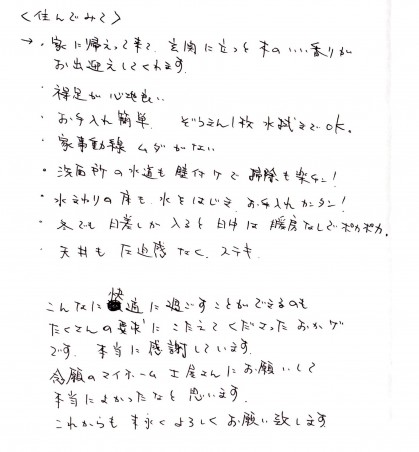 <住んでみて>
→・家に帰えって来て、玄関に立つと木のいい香りが
お出迎えしてくれます。
・裸足が心地良い
・お手入れ簡単。ぞうきん1枚 水拭きでOK。
・家事動線 ムダがない
・洗面所の水道も壁付けで掃除も楽チン!
・水まわりの床も、水をはじき、お手入れカンタン!
・冬でも日差しが入ると日中は暖房なしでポカポカ。
・天井も圧迫感なく、ステキ
こんなに快適に過ごすことができるのも
たくさんの要求にこたえてくださったおかげ
です。本当に感謝しています。
念願のマイホーム 土屋さんにお願いして
本当によかったなと思います。
これからも末永くよろしくお願い致します